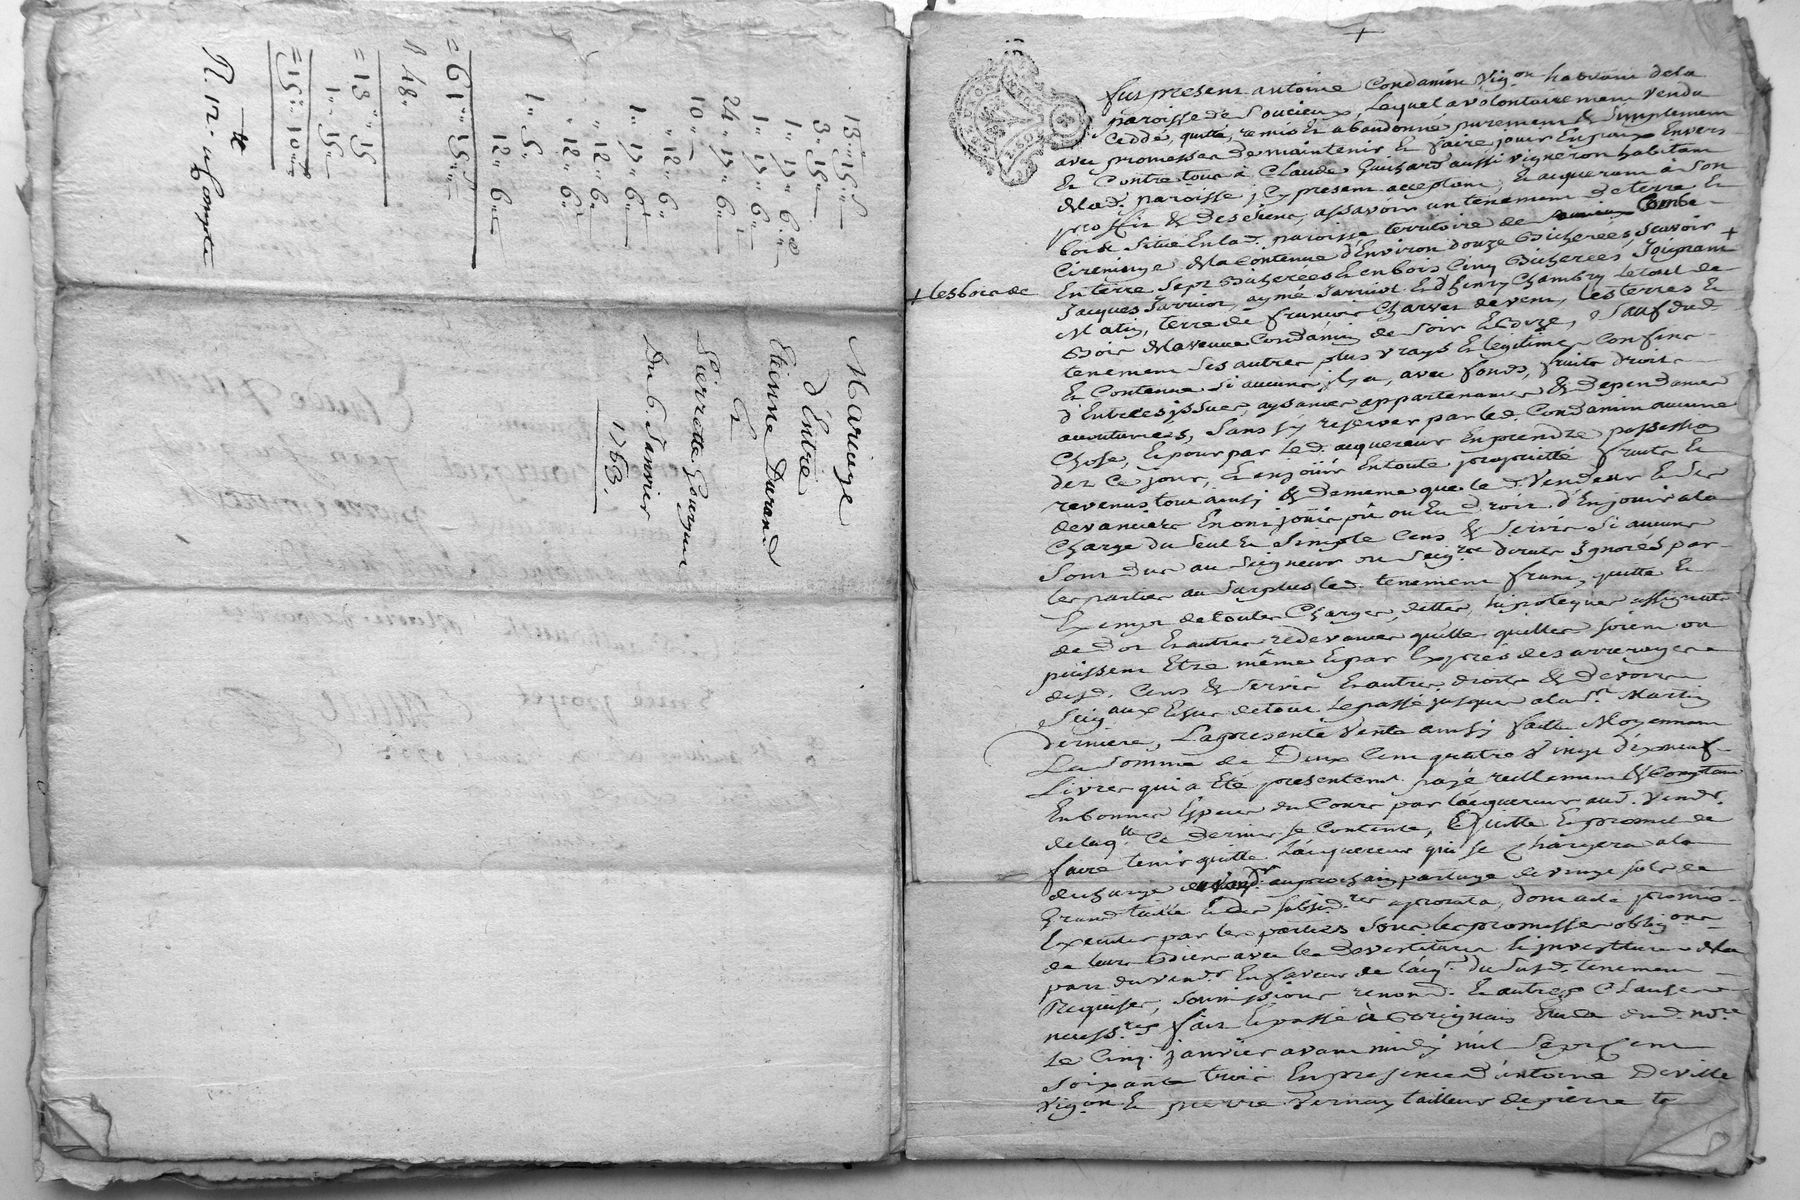 13" 15"
3" 15"
1" 17" 6"
1" 17" 6"
24" 17" 6"
10"
" 12" 6"
1" 17" 6"
" 12" 6"
" 12" 6"
1" 5"
12" 6"
= 61" 15"
R 48"
= 13" 15
1" 15"
= 15" 10"
R. 12. a Compte
Mariage
d'Entre
Etienne Durand
Et
Pierrette Gourgun
Du 6. Janvier
1763.
fut present antoine Condamin Vig.on habitant de la
paroisse de Soucieux, Lequel a volontairement vendu
Ceddé, quitté, remis Et abandonné purement & simplement
avec promesse de maintenir Et faire jouir En paix Envers
Et Contre tous à Claude Guichard aussi vigneron habitant
de lad. paroisse, Cy present acceptant, Et acquerant à son
proffit & des siens, assavoir un tenement de terre Et
bois Situé En lad. paroisse territoire de Combe
de la Contenue d'Environ douze Bicherées, scavoir
En terre sept Bicherées Et en bois Cinq Bicherées, Joignant +
+ les bois de
Jacques Jarricot, aymé Jarricot Et d'henry Chambry Le tout de
Matin, terre de francois Charvet de vent, les terres Et
Bois de la veuve Condamin de soir Et Bize, Sauf dud.
tenement ses autres plus vrays Et legitimes Confins
Et Contenue si aucuns il y a, avec fonds, fruits droits
d'Entrées issues, aysances appartenances & dependances
, Sans s'y reserver par led. Condamin aucune
Chose, Et pour par led. acquereur En prendre possession
dez Ce jour, Et en jouir En toute proprieté fruits Et
revenus tout ainsy & de meme que led. Vendeur Et Ses
devanciers En ont jouis pû ou Eu droit d'En jouir a la
Charge du seul Et simple Cens & servis si aucuns
Sont dus au Seigneur ou Seig.rs directs Ignorés par
les parties au surplus led. tenement franc, quitte Et
Exempt de toutes Charges, dettes, hipoteques
de d'ot Et autres redevances quelles quelles soient ou
puissent Etre même Et par Exprés des arrerages
desd. Cens & servis Et autres droits & devoirs
Seig.aux Echus de tout Le passé jusques a la St. Martin
derniere, La presente Vente ainsy faitte Moyennant
La Somme de Deux Cent quatre Vingt dixneuf
Livres qui a Eté presentem.t payé reellement & Comptant
En bonnes Especes du Cours par l'acquereur aud. Vend.r
de laq.lle Ce dernier se Contente, Quitte Et promet de
faire tenir quitte L'acquereur qui se Chargera a la
decharge du vend.r au prochain partage de vingt sols de
Grand taille Et des subsid.res a prorata, dont acte promis
Executer par les parties sous les promesses oblig.ons
de leurs Biens avec les devestitures Et investitures de la
part du vend.r En faveur de l'acq.r du susd. tenement
Requises, soumissions renon.s Et autres Clauses
necess.res fait Et passé à Brignais Etude dud. no.re
Le Cinq janvier avant midy mil sept Cent
soixante trois En presence d'antoine Deville
Vig.on Et pierre Vernay tailleur de pierre te